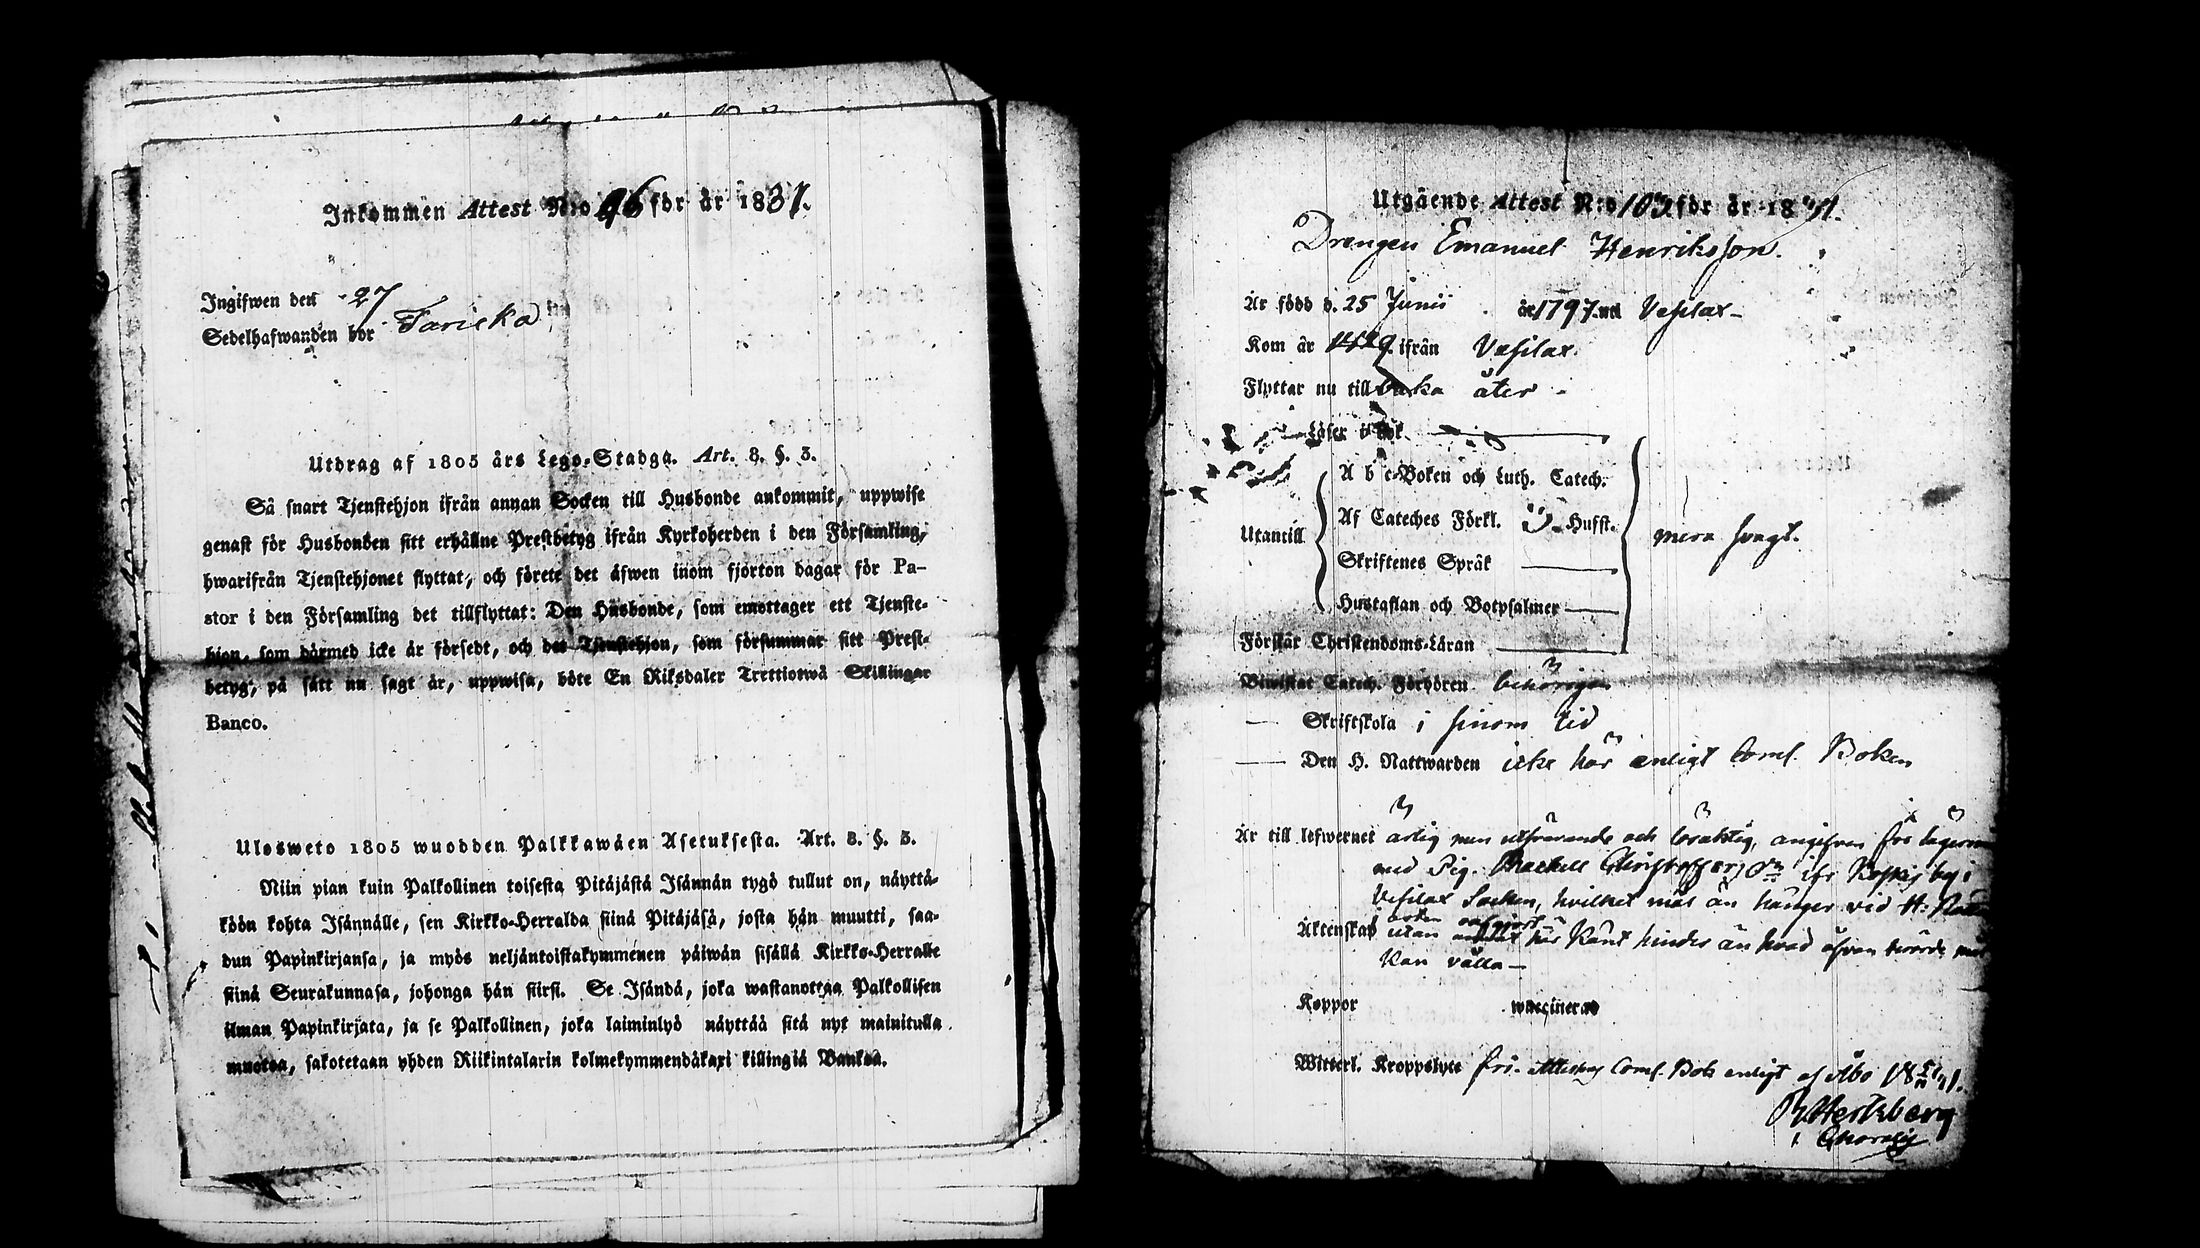 Inkommen Attest N:o 96 för år 1831.
Ingifwen den 27
Sedelhafwanden bor
Utdrag af 1805 års Lego-Stadga. Art. 8. §. 3.
Så snart Tjenstehjon ifrån annan Socken till Husbonde ankommit, uppwise
genast för Husbonden sitt erhållne Prestbetyg ifrån Kyrkoherden i den Församling,
hwarifrån Tjenstehjonet flyttat, och förete det äfwen inom fjorton dagar för Pa-
stor i den Församling det tillflyttat: Den Husbonde, som emottager ett Tjenste-
hjon, som därmed icke är försedt, och det Tjenstehjon, som försummar sitt Prest-
betyg, på sätt nu sagt är, uppwisa, böte En Riksdaler Trettiotwå Skillingar
Banco.
Ulosweto 1805 wuodden Palkkawäen Asetuksesta. Art. 8. §. 3.
Niin pian kuin Palkollinen toisesta Pitäjästä Isännän tygö tullut on, näyttä-
köön kohta Isännälle, sen Kirkko-Herralda siinä Pitäjäsä, josta hän muutti, saa-
dun Papinkirjansa, ja myös neljäntoistakymmenen päiwän sisällä Kirkko-Herralle
siinä Seurakunnasa, johonga hän siirsi. Se Isändä, joka wastanottaa Palkollisen
ilman Papinkirjata, ja se Palkollinen, joka laiminlyö näyttää sitä nyt mainitulla
muotoa, sakotetaan yhden Riikintalarin kolmekymmendäkaxi killingiä Bankoa.
Utgående Attest N:o 103 för år 18
Drengen Emanuel Henriksson.
Är född d. 25 Junii år 1797 uti Vesilax
Kom år 1829 ifrån Vesilax
Flyttar nu tillbaka åter
Läser i Bok
Utantill
A b c-Boken och Luth. Catech.
Af Cateches Förkl. Hufst.
Skriftenes Språk
Hustaflan och Botpsalmer
mera svagt.
Förstår Christendoms-Läran
Biwistat Catech. Förhören behörigen
Skriftskola i sinom tid
Den H. Nattwarden icke här enligt Com. Boken
Är till lefwernet ärlig men och angifven för lägersm
med Pig. ifr by i
Vesilax Socken, hvilket mål än hänger vid H:
Äktenskap utan här känt hinder än hvad
kan vålla
Koppor waccinerad
Witterl. Kroppslyte fri. Com. Bok enligt af Åbo
Hertzberg